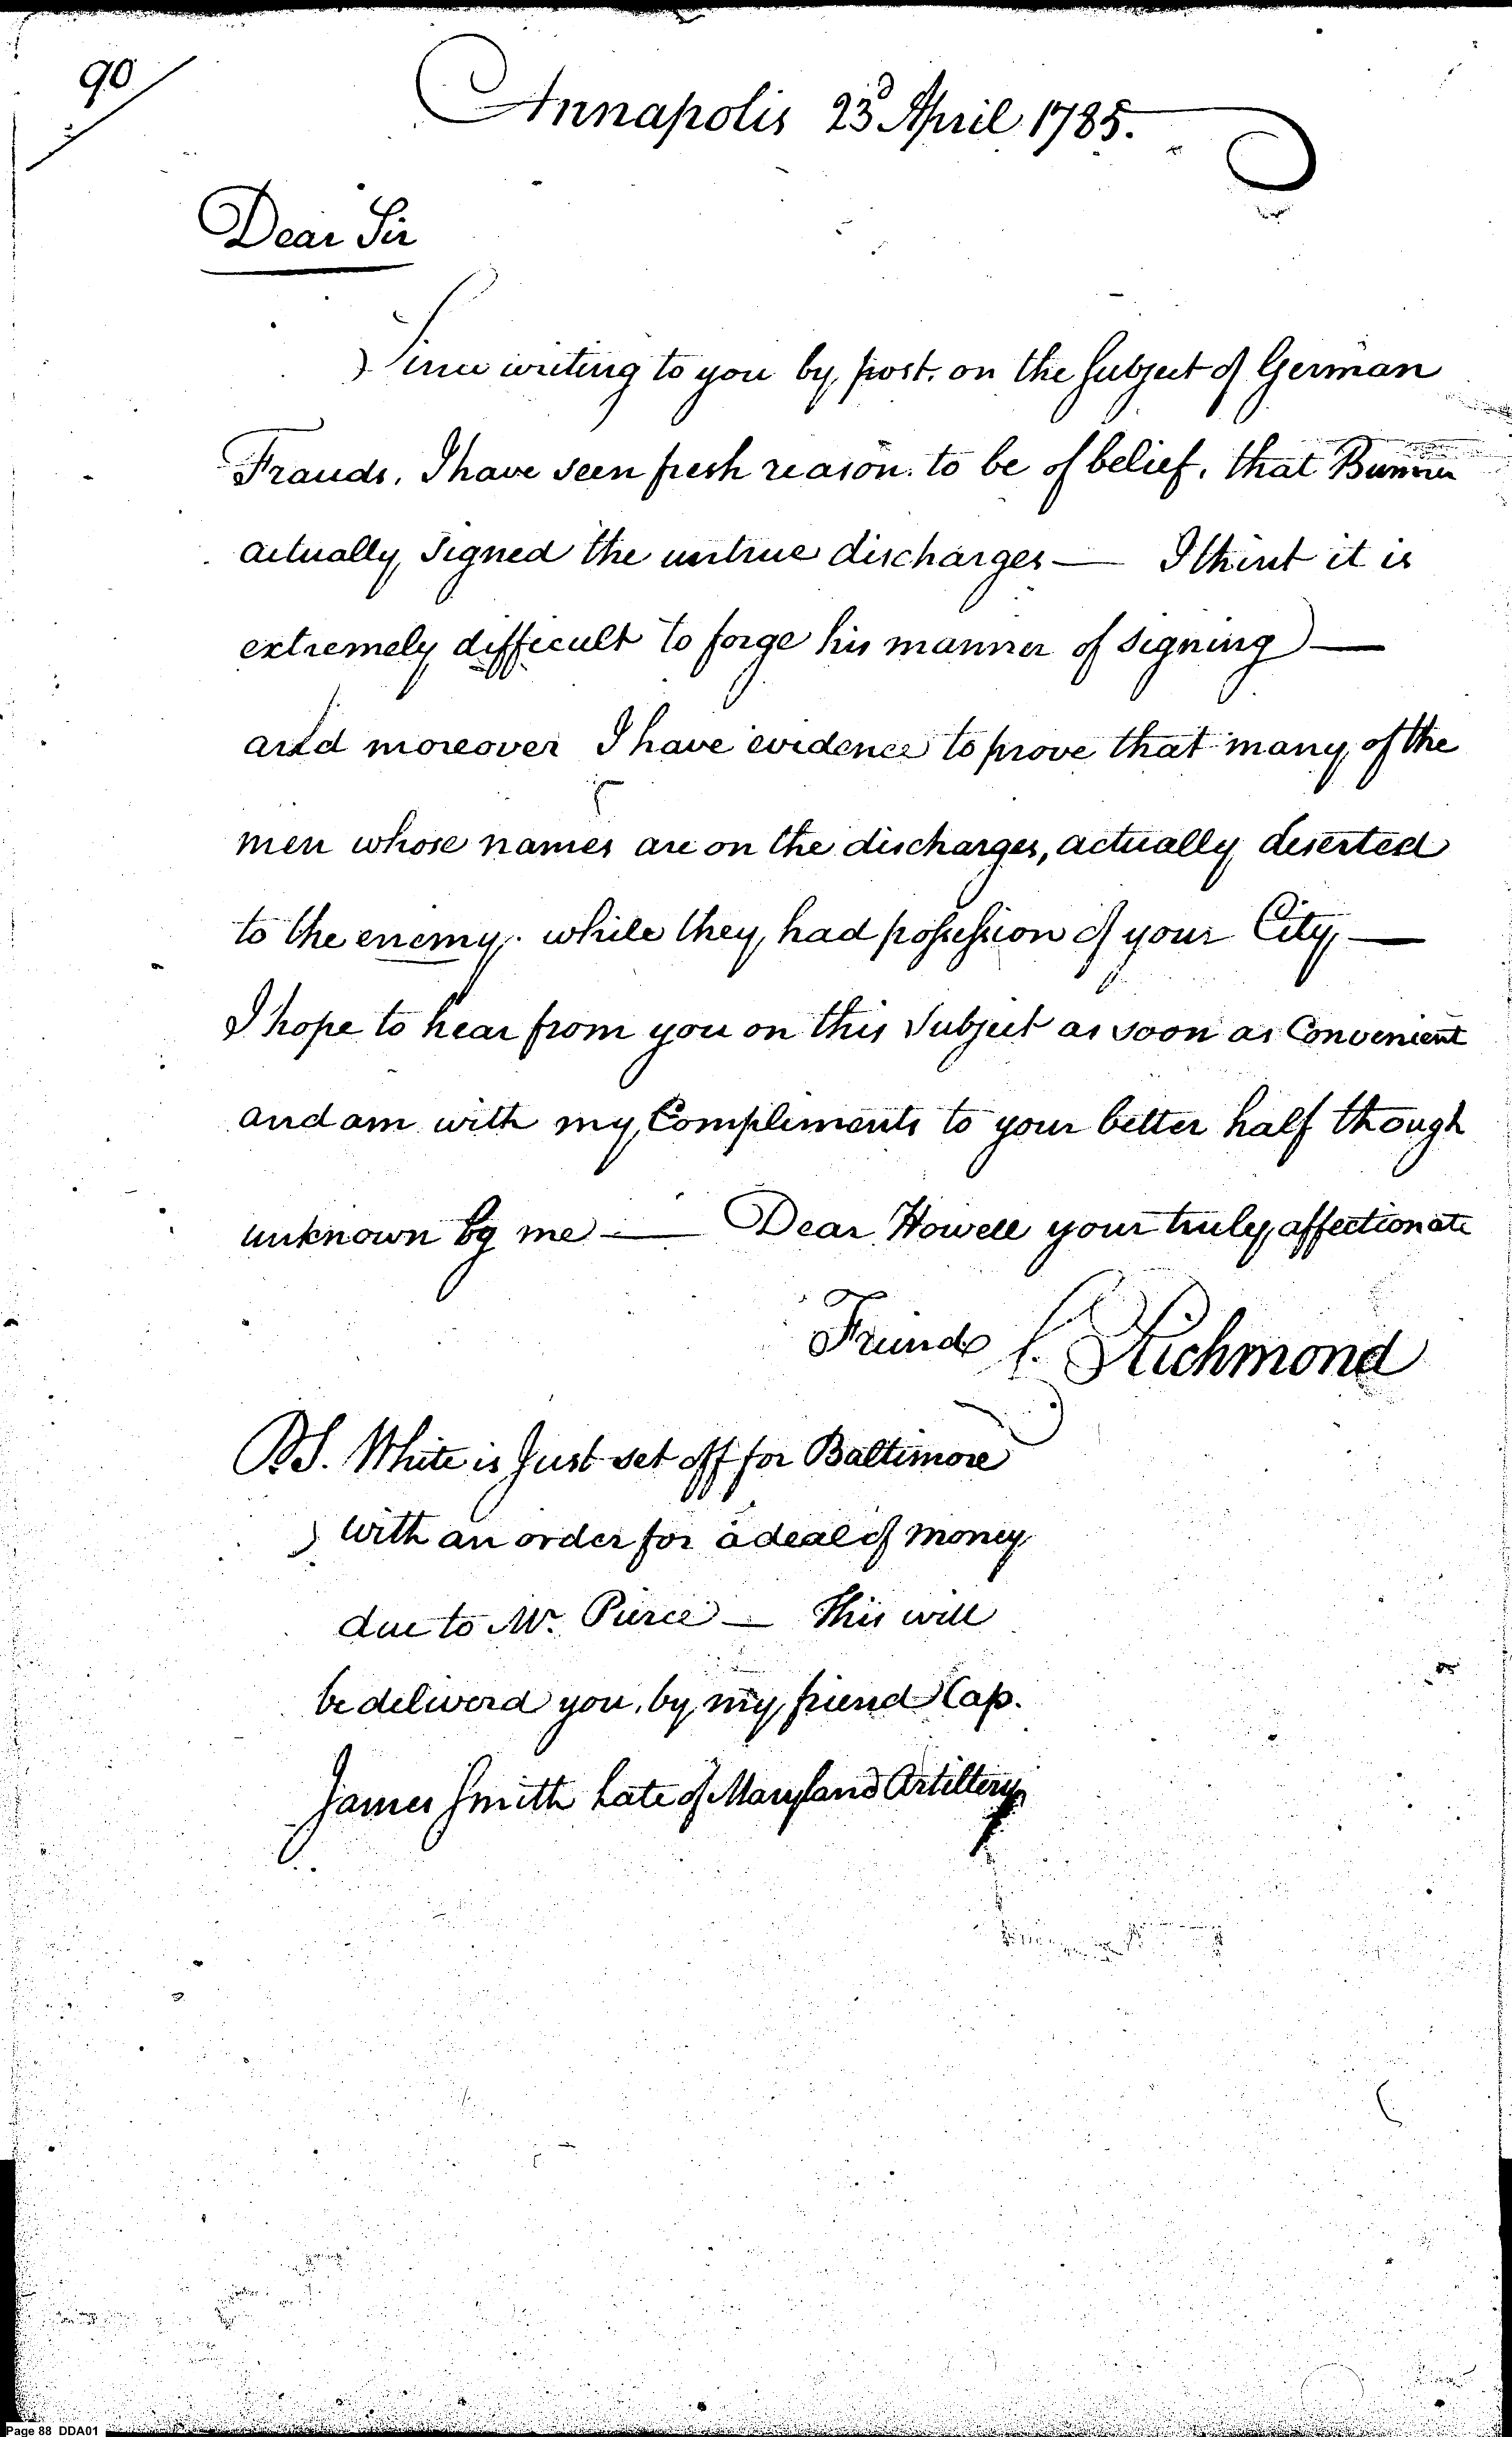 90
Annapolis 23d April 1785.
Dear Sir
Since writing to you by post. on the Subject of German
Frauds, I have seen fresh reason. to be of belief, that Bunner
actually Signed the untrue discharges — I think it is
extremely difficult to forge his manner of signing) —
and moreover I have evidence to prove that many of the
men whose names are on the discharges, actually deserted
to the enemy. while they had possession of your City —
I hope to hear from you on this Subject as soon as Convenient
and am with my Compliments to your better half though
unknown by me — Dear Howell your truly affectionate
Friend C. Richmond
PS. White is Just set off for Baltimore
with an order for a deal of money
due to Mr. Pierce — This will
be deliverd you, by my friend Cap.
James Smith Late of Maryland Artillery
Page 88 DDA01